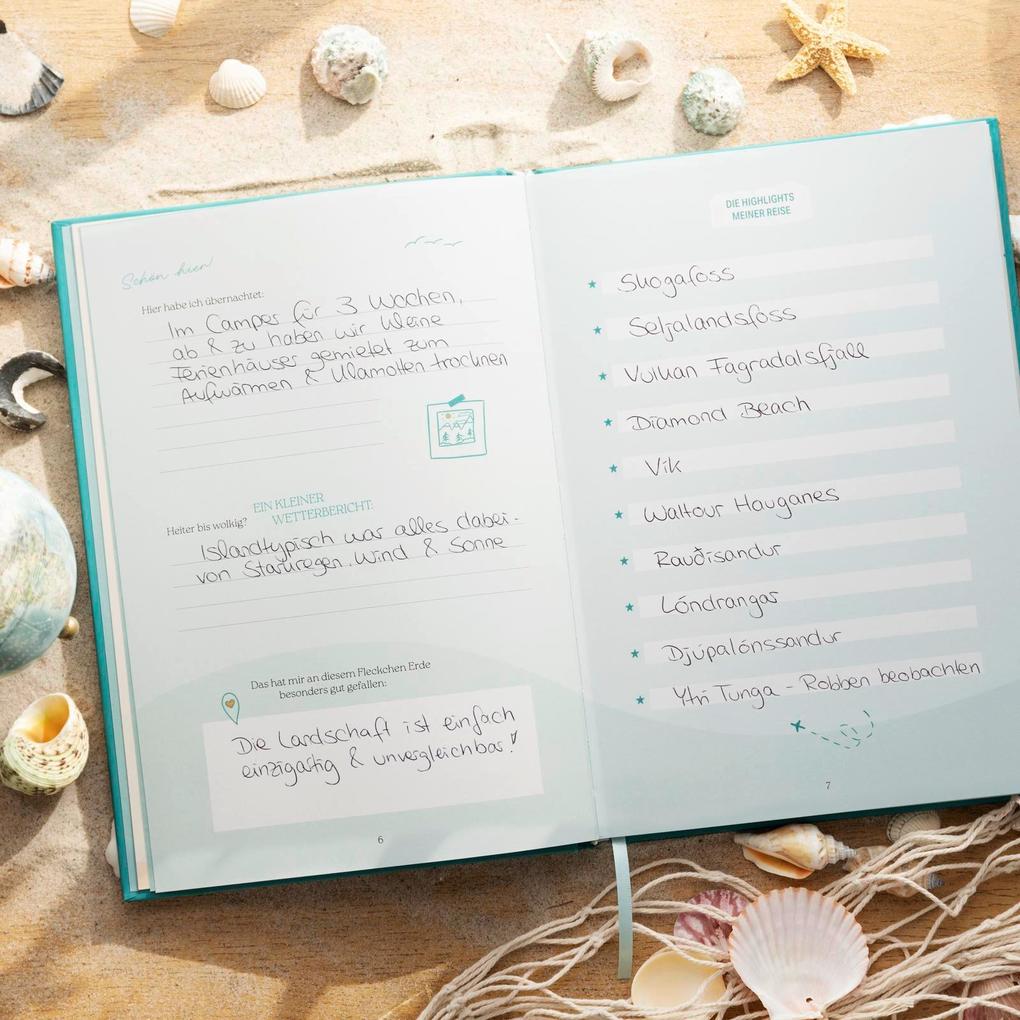 Schön hier!
Hier habe ich übernachtet:
Im Camper für 3 Wochen,
ab & zu haben wir kleine
Ferienhäuser gemietet zum
Aufwärmen & Klamotten trocknen
EIN KLEINER
WETTERBERICHT:
Heiter bis wolkig?
Islandtypisch war alles dabei -
von Starkregen, Wind & Sonne
Das hat mir an diesem Fleckchen Erde
besonders gut gefallen:
Die Landschaft ist einfach
einzigartig & unvergleichbar!
6
DIE HIGHLIGHTS
MEINER REISE
Skogafoss
Seljalandsfoss
Vulkan Fagradalsfjall
Diamond Beach
Vik
Waltour Hauganes
Rauðisandur
Lóndrangar
Djúpalónssandur
Ytri Tunga - Robben beobachten
7